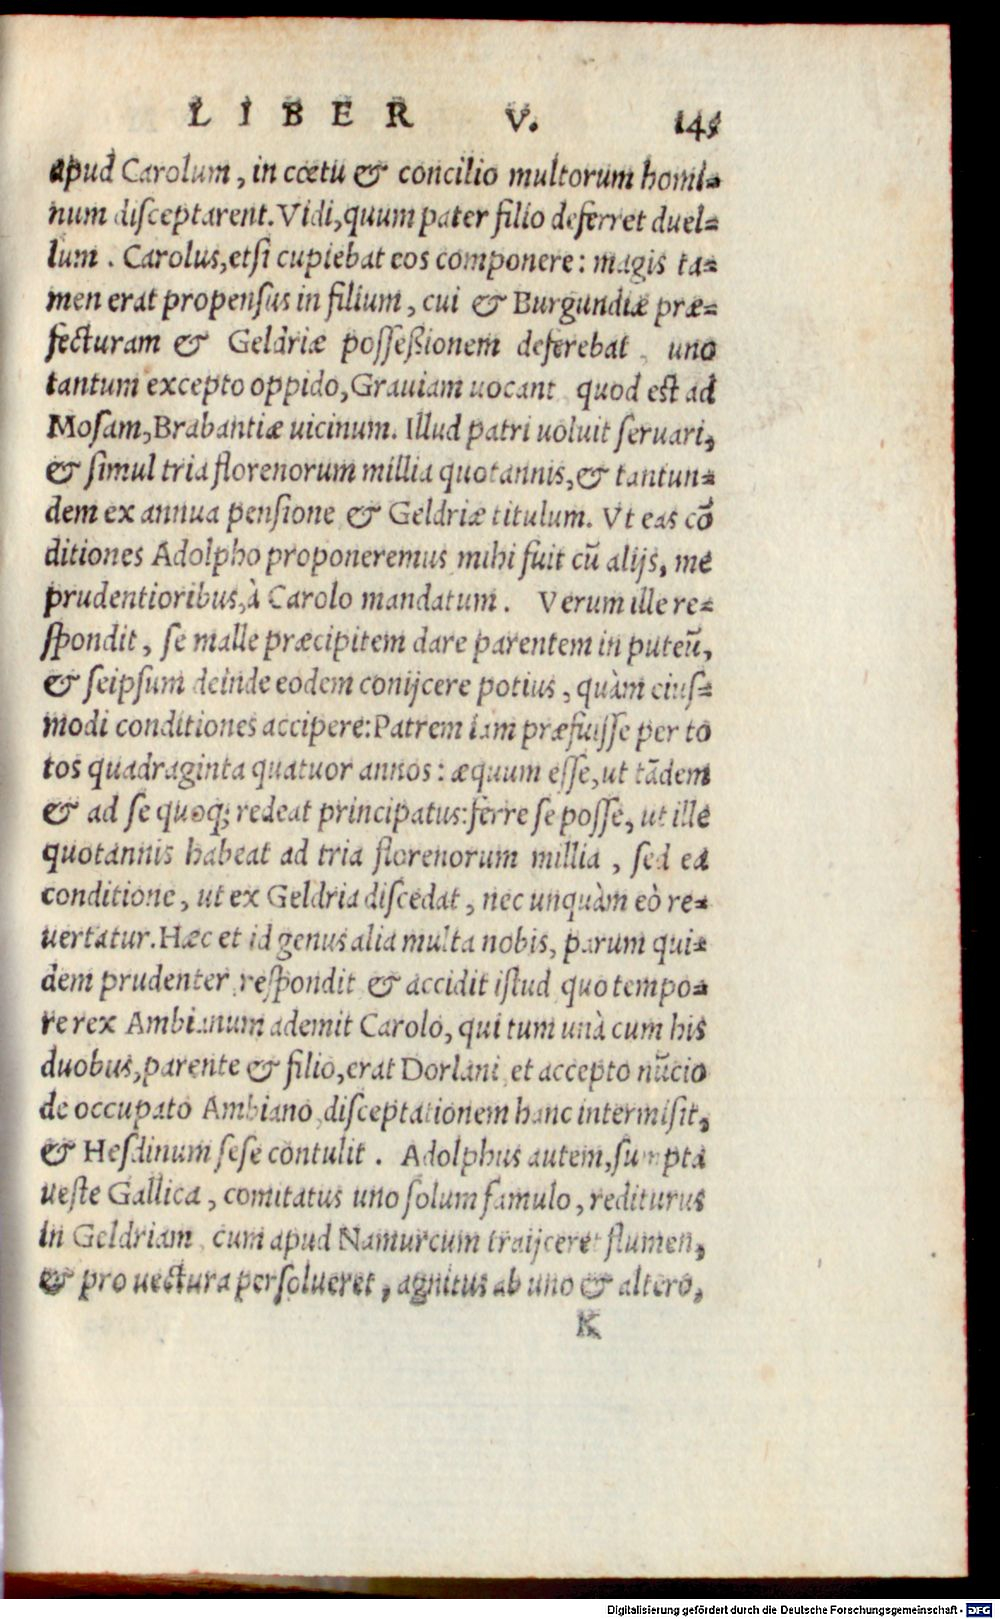 LIBER V. 145
apud Carolum, in cœtu & concilio multorum homi-
num disceptarent. Vidi, quum pater filio deferret duel-
lum. Carolus, etsi cupiebat eos componere: magis ta-
men erat propensus in filium, cui & Burgundiæ præ-
fecturam & Geldriæ possessionem deferebat, uno
tantum excepto oppido, Grauiam uocant, quod est ad
Mosam, Brabantiæ uicinum. Illud patri uoluit seruari,
& simul tria florenorum millia quotannis, & tantun-
dem ex annua pensione, & Geldriæ titulum. Vt eas cõ
ditiones Adolpho proponeremus, mihi fuit cũ alijs, me
prudentioribus, à Carolo mandatum. Verum ille re-
spondit, se malle præcipitem dare parentem in puteũ,
& seipsum deinde eodem conijcere potius, quàm eius-
modi conditiones accipere: Patrem iam præfuisse per to
tos quadraginta quatuor annos: æquum esse, ut tãdem
& ad se quoq; redeat principatus: ferre se posse, ut ille
quotannis habeat ad tria florenorum millia, sed ea
conditione, ut ex Geldria discedat, nec unquàm eò re-
uertatur. Hæc et id genus alia multa nobis, parum qui-
dem prudenter, respondit & accidit istud, quo tempo-
re rex Ambianum ademit Carolo, qui tum unà cum his
duobus, parente & filio, erat Dorlani, et accepto nũcio
de occupato Ambiano, disceptationem hanc intermisit,
& Hesdinum sese contulit. Adolphus autem, sumpta
ueste Gallica, comitatus uno solum famulo, rediturus
in Geldriam, cum apud Namurcum traijceret flumen,
& pro uectura persolueret, agnitus ab uno & altero,
K
Digitalisierung gefördert durch die Deutsche Forschungsgemeinschaft - DFG